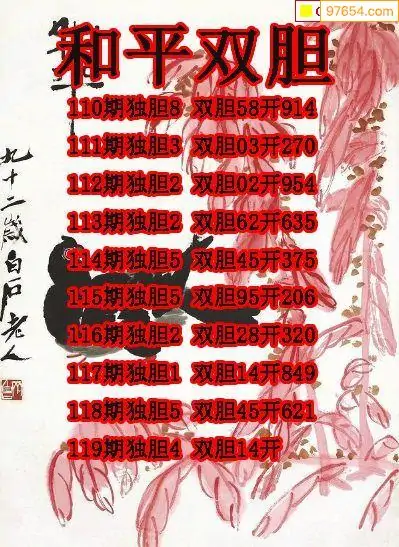 97654.com
和平双胆
110期独胆8 双胆58开914
111期独胆3 双胆03开270
112期独胆2 双胆02开954
113期独胆2 双胆62开635
114期独胆5 双胆45开375
115期独胆5 双胆95开206
116期独胆2 双胆28开320
117期独胆1 双胆14开849
118期独胆5 双胆45开621
119期独胆4 双胆14开
九十二岁白石老人